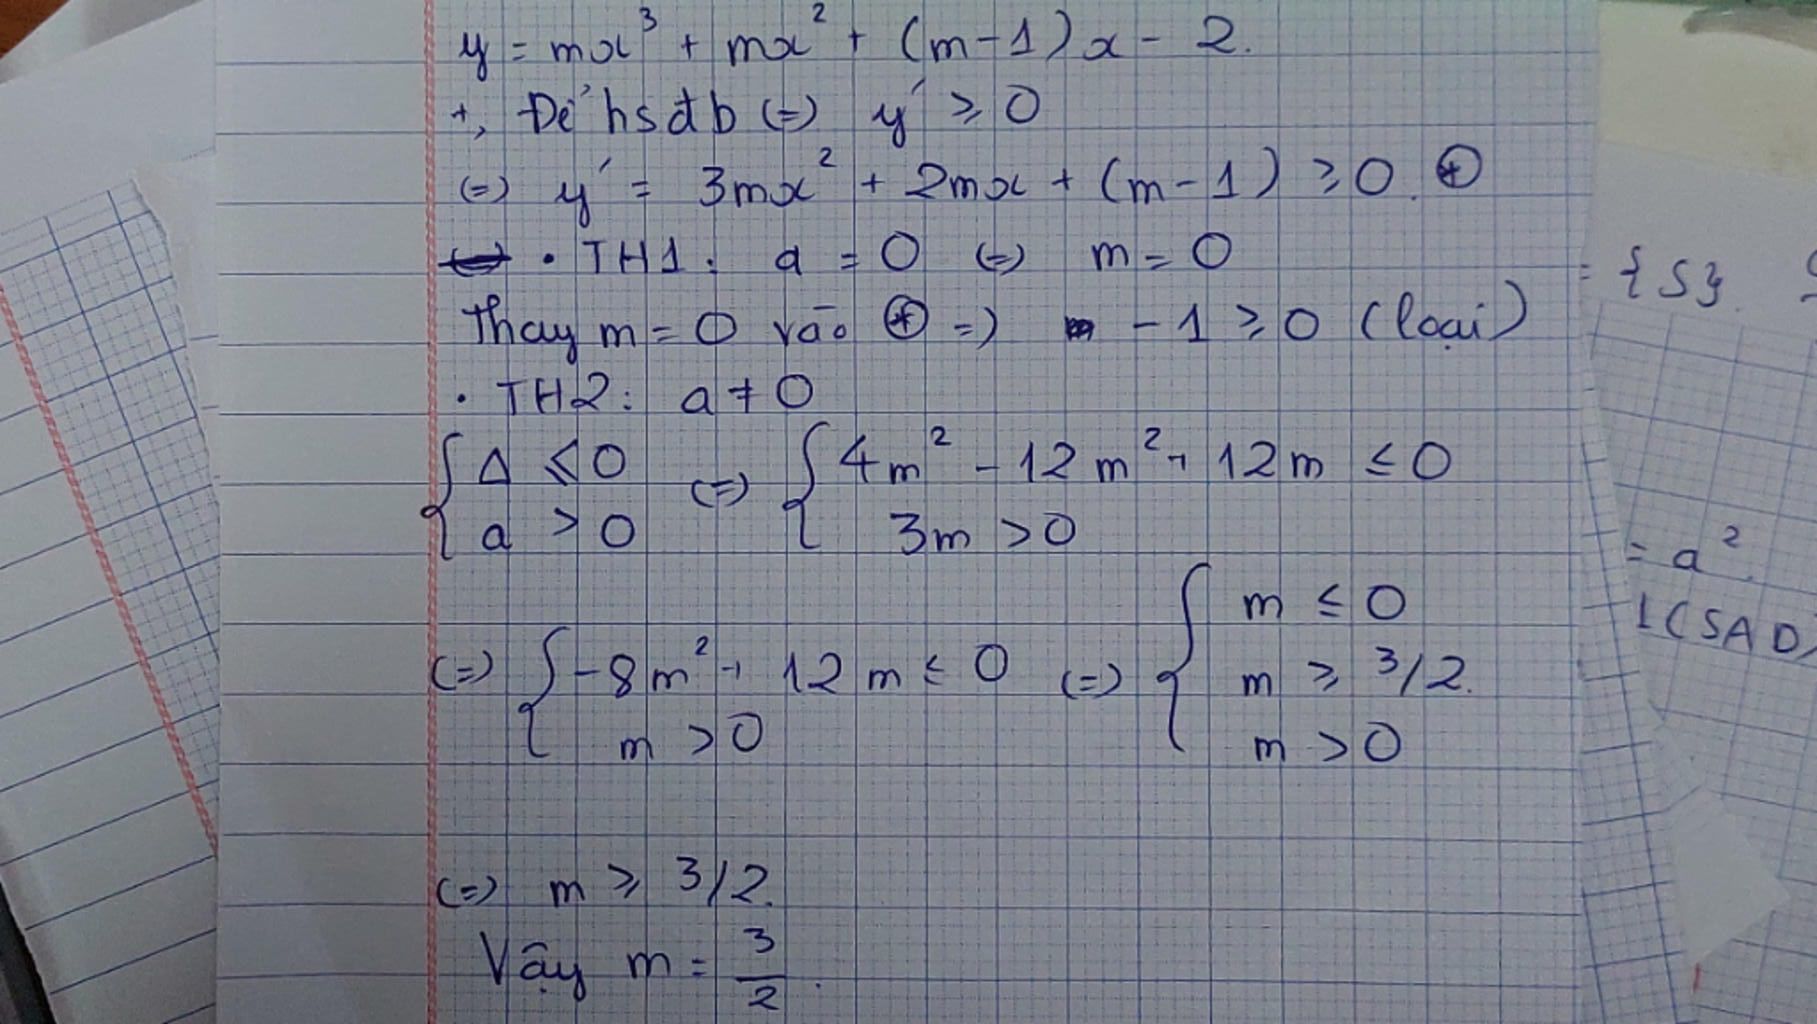 y = mx³ + mx² + (m-1)x - 2.
+, Để hsđb (=) y' ≥ 0
(=) y' = 3mx² + 2mx + (m-1) ≥ 0. ⊛
• TH1: a = 0 (=) m = 0
Thay m = 0 vào ⊛ =) -1 ≥ 0 (loại)
• TH2: a ≠ 0
{ Δ ≤ 0 (=) { 4m² - 12m² + 12m ≤ 0
a > 0 3m > 0
(=) { -8m² + 12m ≤ 0 (=) { m ≤ 0
m ≥ 3/2.
m > 0 m > 0
(=) m ≥ 3/2.
Vậy m = 3/2.
= {S}.
= a².
(SAD)